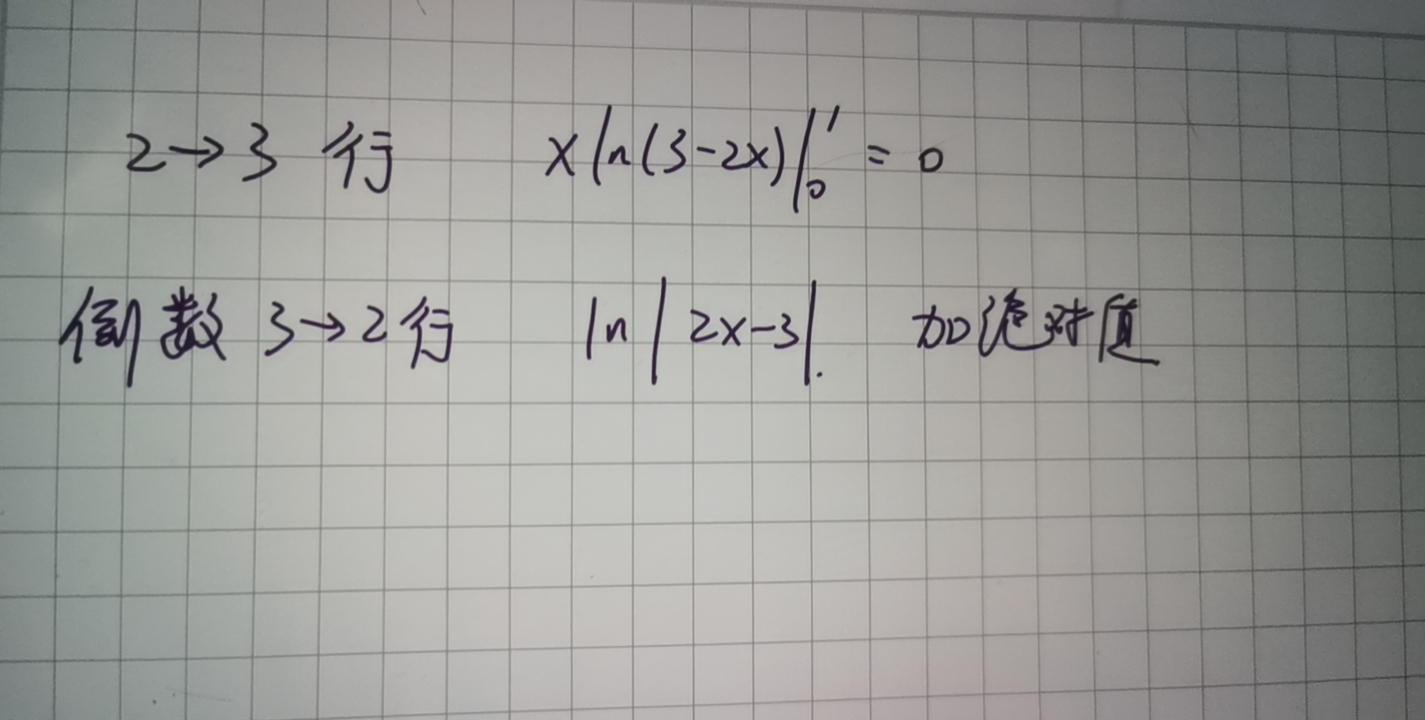 2→3 行 x ln(3-2x)|₀¹ = 0
倒数 3→2 行 ln|2x-3|. 加绝对值